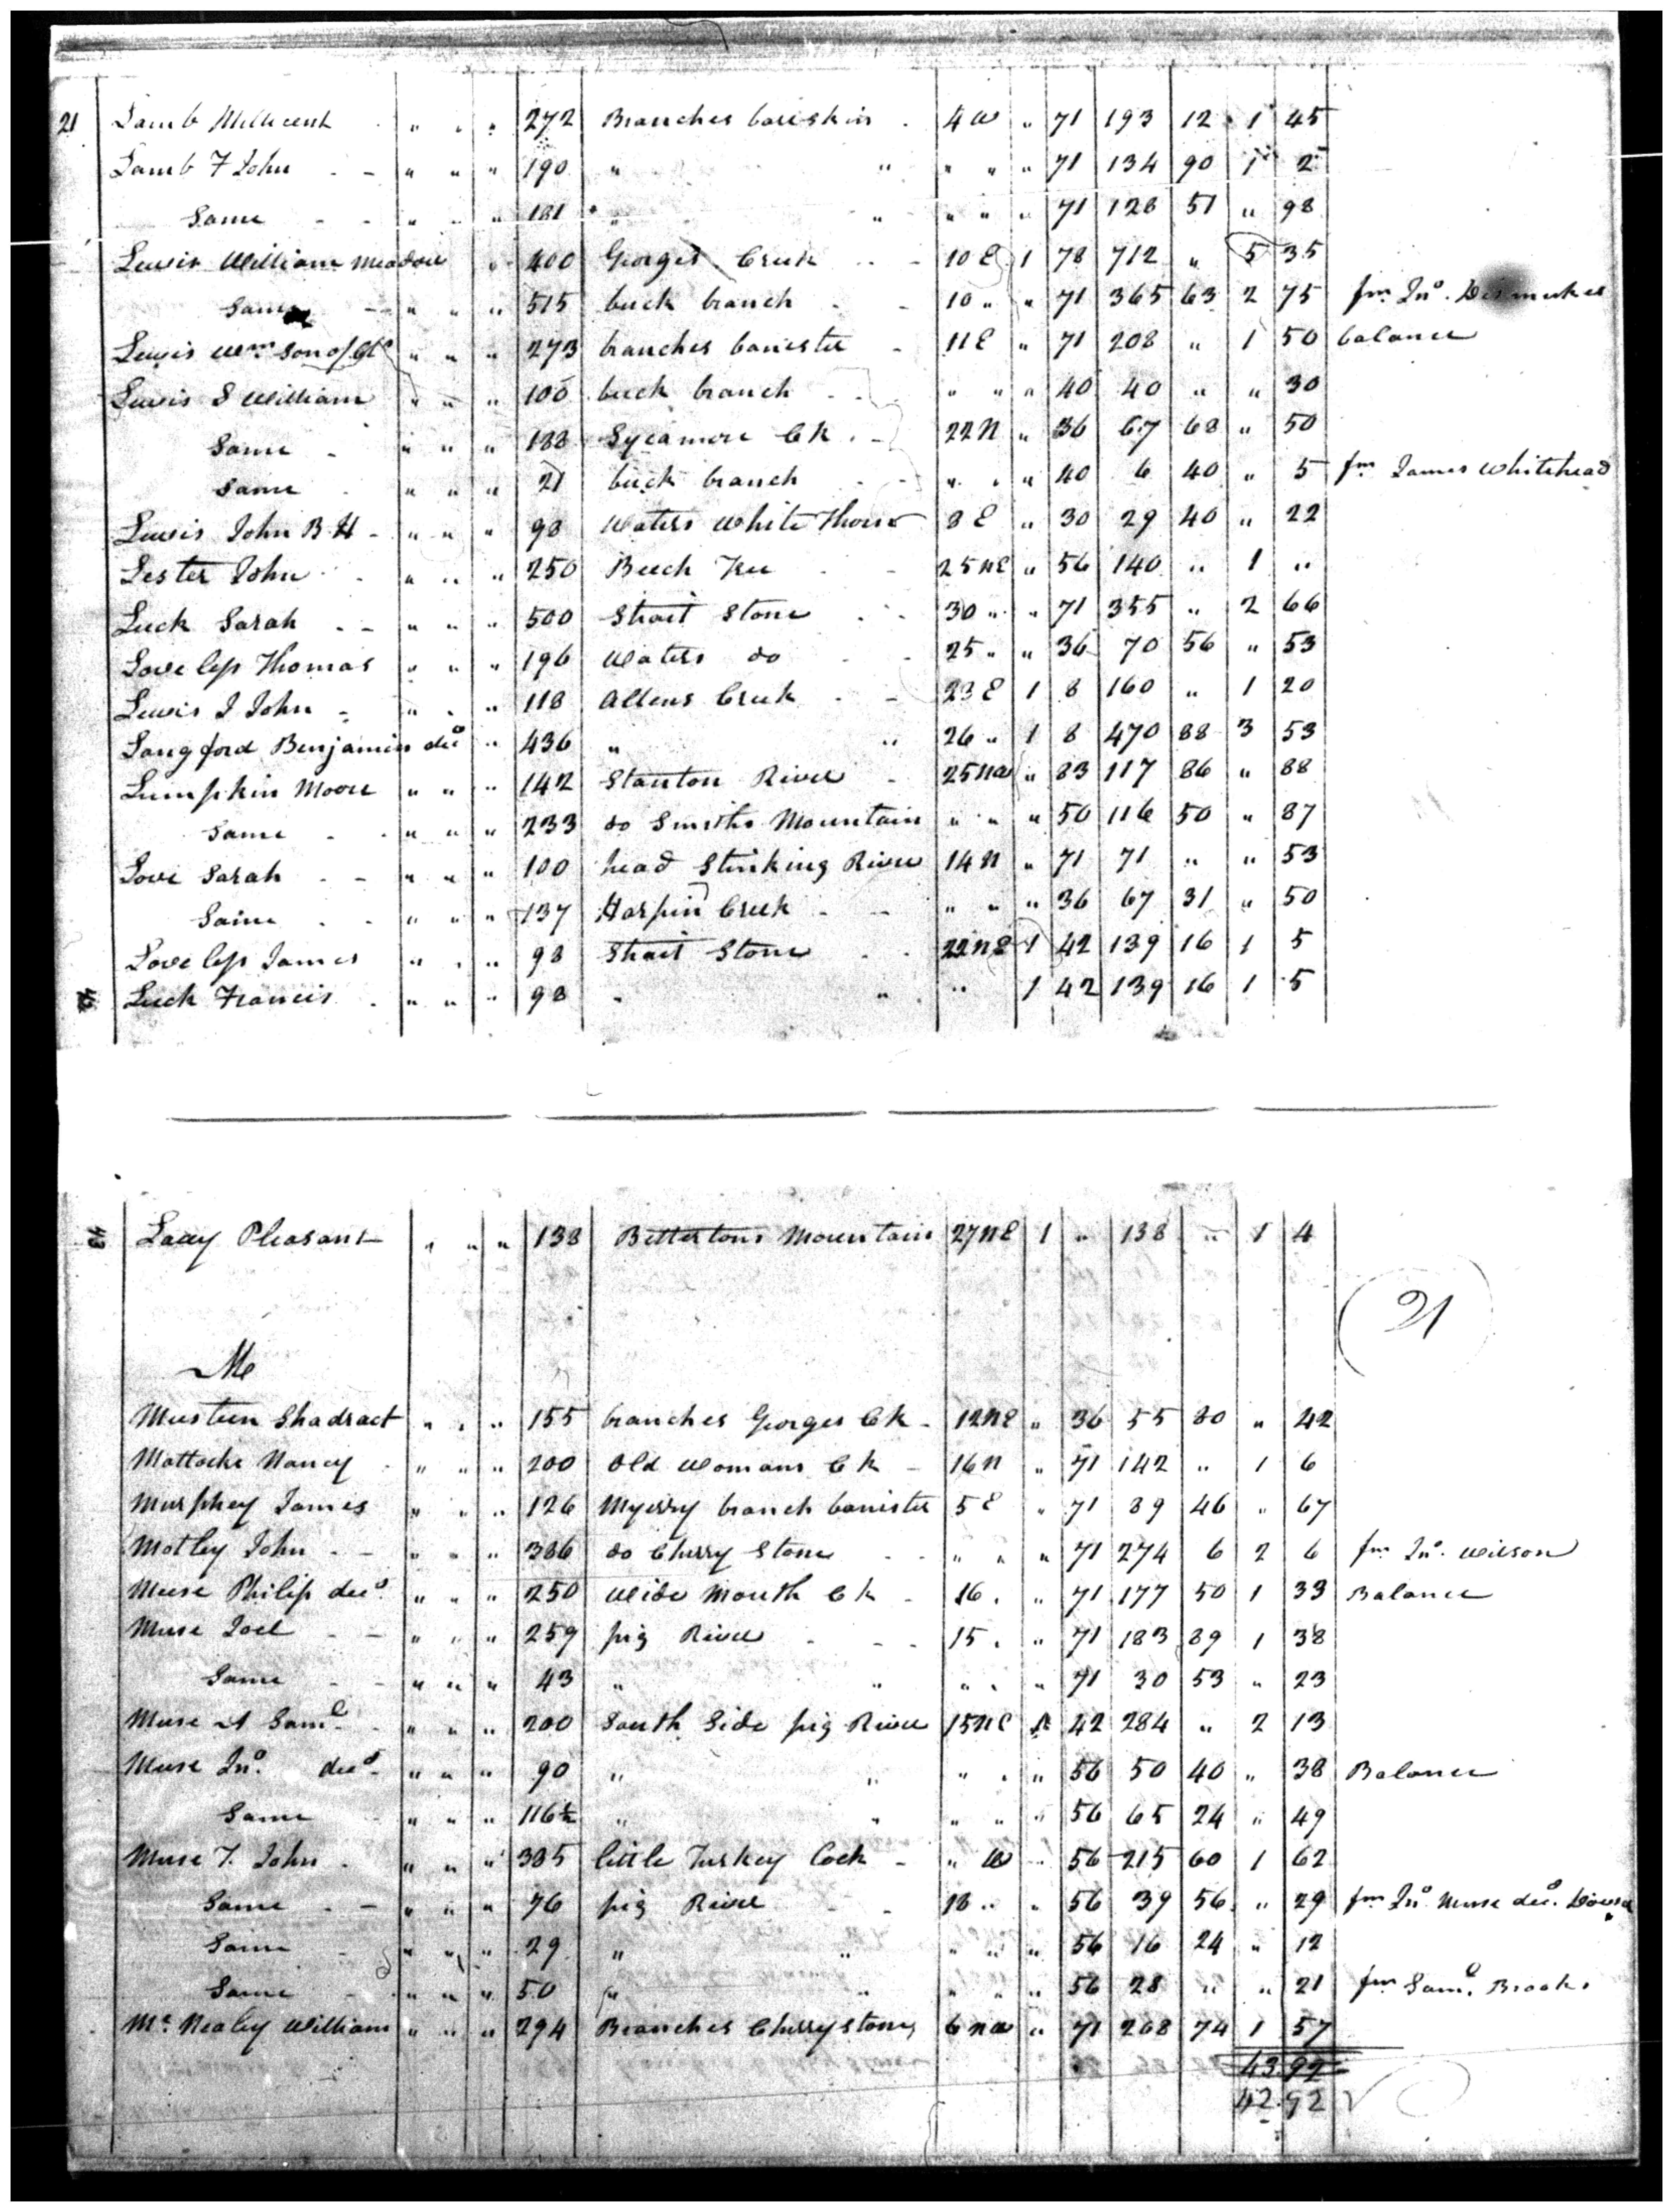 21 Lamb Millicent " " " 272 Branches bariskin 4 W " 71 193 12 1 45
Lamb F John " " " 190 " " " " " 71 134 90 1 2
Same " " " 181 " " " " " 71 128 51 " 98
Lewis William Meadow " 400 Georges Creek 10 E 1 78 712 " 5 35
Same " " " 515 buck branch 10 " " 71 365 63 2 75 fm Jno.
Lewis Wm Son of " " " 293 branches banister 11 E " 71 208 " 1 50 balance
Lewis S William " " " 100 buck branch " " " 40 40 " " 30
Same " " " 188 Sycamore Ck 22 N " 36 67 68 " 50
Same " " " 21 buck branch " " " 40 6 40 " 5 fm James Whitehead
Lewis John B H " " " 98 Waters White Thorn 8 E " 30 29 40 " 22
Lester John " " " 250 Beech Tree 25 NE " 56 140 " 1 "
Luck Sarah " " " 500 Strait Stone 30 " " 71 355 " 2 66
Lovelass Thomas " " " 196 Waters do 25 " " 36 70 56 " 53
Lewis J John " " " 118 Allens Creek 23 E 1 8 160 " 1 20
Langford Benjamin decd " 436 " " 26 " 1 8 470 88 3 53
Lumpkin Moore " " " 142 Stanton River 25 NW " 83 117 86 " 88
Same " " " 233 do Smiths Mountain " " " 50 116 50 " 87
Love Sarah " " " 100 head Stinking River 14 N " 71 71 " " 53
Same " " " 137 Harpin Creek " " " 36 67 31 " 50
Loveless James " " " 98 Strait Stone 22 NE 1 42 139 16 1 5
Luck Francis " " " 98 " " " 1 42 139 16 1 5
Lacey Pleasant " " " 138 Bettertons Mountain 27 NE 1 " 138 " 1 4
21
M
Musteen Shadract " " " 155 branches Georges Ck 12 NE " 36 55 80 " 42
Mattocks Nancy " " " 200 Old Womans Ck 16 N " 71 142 " 1 6
Murphey James " " " 126 Myerry branch banister 5 E " 71 89 46 " 67
Motley John " " " 386 do Cherry Stone " " " 71 274 6 2 6 fm Jno. Wilson
Muse Philip decd " " " 250 Wide Mouth Ck 16 " " 71 177 50 1 33 Balance
Muse Joel " " " 259 pig River 15 " " 71 183 89 1 38
Same " " " 43 " " " " " 71 30 53 " 23
Muse A Saml " " " 200 South Side pig River 15 NE 1 42 284 " 2 13
Muse Jno. decd " " " 90 " " " " " 56 50 40 " 38 Balance
Same " " " 116½ " " " " " 56 65 24 " 49
Muse T. John " " " 385 little Turkey Cock " W " 56 215 60 1 62
Same " " " 76 pig River 18 " " 56 39 56 " 29 fm Jno Muse decd. Dower
Same " " " 29 " " " " " 56 16 24 " 12
Same " " " 50 " " " " " 56 28 " " 21 fm Saml. Brooks
Mc Nealey William " " " 294 Branches Cherrystone 6 NW " 71 208 74 1 57
43 92
42.92